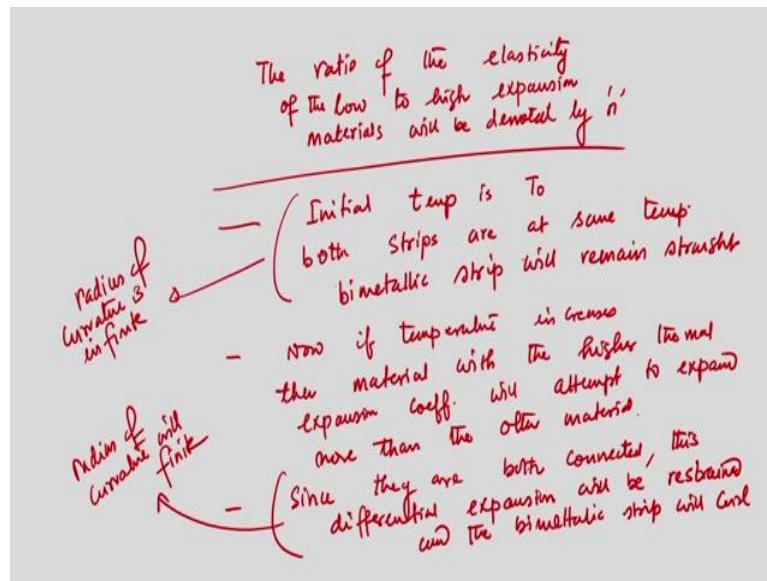 The ratio of the elasticity
of the low to high expansion
materials will be denoted by 'n'
- Initial temp is To
both strips are at same temp.
bimetallic strip will remain straight
radius of
curvature is
infinite
- Now if temperature increases
the material with the higher thermal
expansion coeff. will attempt to expand
more than the other material.
radius of
curvature will
finite
- Since they are both connected, this
differential expansion will be restrained
and the bimetallic strip will curl